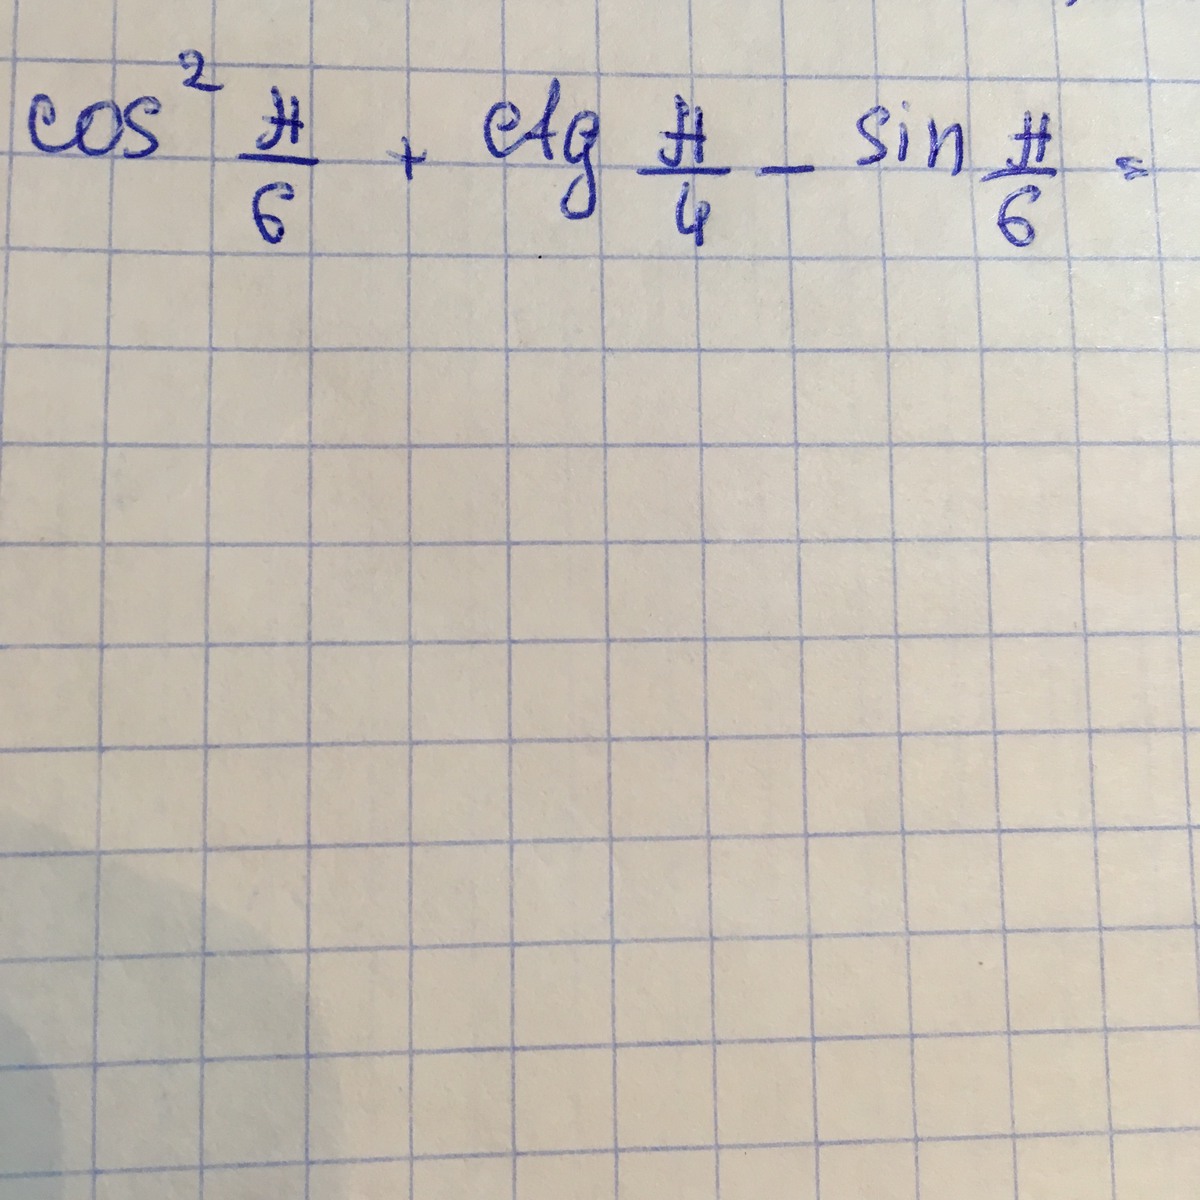 cos² π/6 + ctg π/4 - sin π/6 =